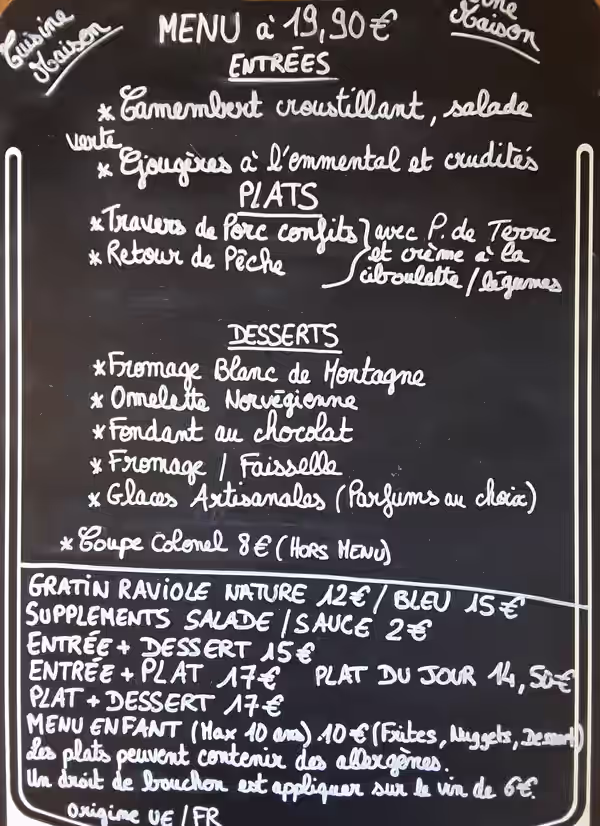 Cuisine
Maison
MENU à 19,90€
ine
Maison
ENTRÉES
* Camembert croustillant, salade
verte
* Gougères à l'emmental et crudités
PLATS
* Travers de Porc confits } avec P. de Terre
* Retour de Pêche et crème à la
ciboulette / légumes
DESSERTS
* Fromage Blanc de Montagne
* Omelette Norvégienne
* Fondant au chocolat
* Fromage / Faisselle
* Glaces Artisanales (Parfums au choix)
* Coupe Colonel 8€ (HORS MENU)
GRATIN RAVIOLE NATURE 12€ / BLEU 15€
SUPPLEMENTS SALADE / SAUCE 2€
ENTRÉE + DESSERT 15€
ENTRÉE + PLAT 17€ PLAT DU JOUR 14,50€
PLAT + DESSERT 17€
MENU ENFANT (Max 10 ans) 10€ (Frites, Nuggets, Dessert)
Les plats peuvent contenir des allergènes.
Un droit de bouchon est appliquer sur le vin de 6€.
Origine UE / FR